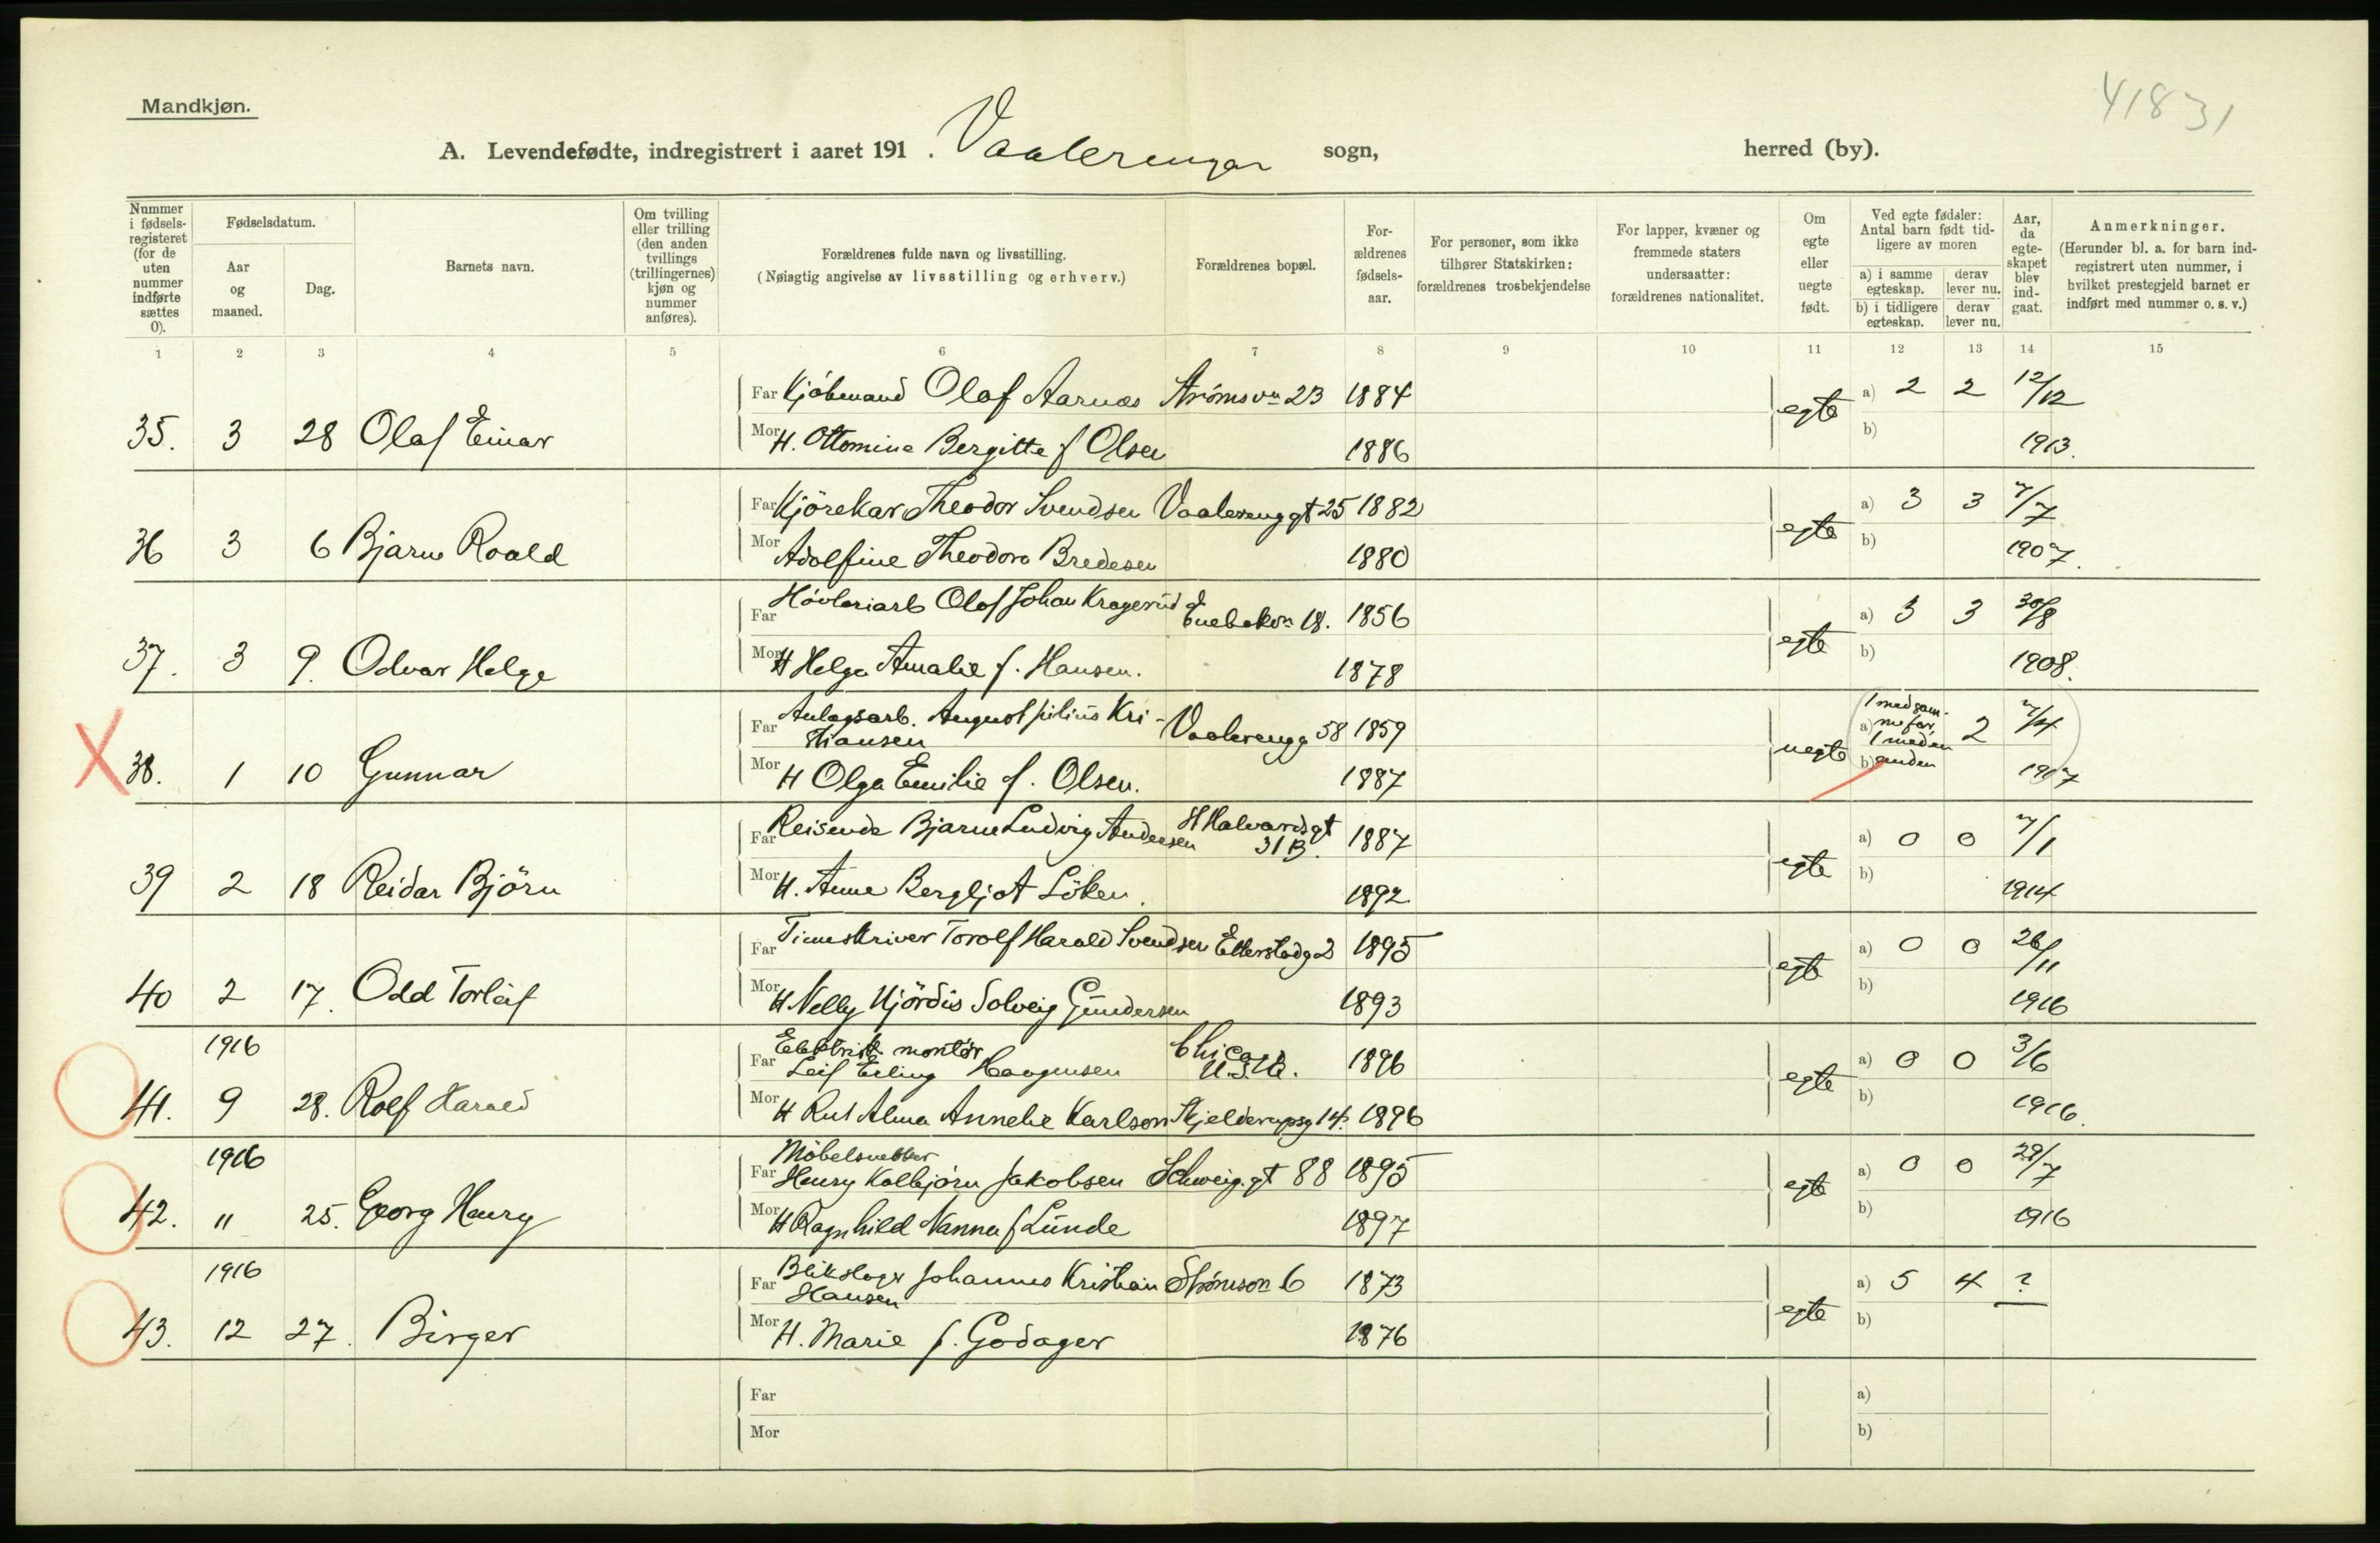 Mandkjøn.
41831
A. Levendefødte, indregistrert i aaret 191 . Vaalerengen sogn, herred (by).
Nummer i fødselsregisteret (for de uten nummer indførte sættes 0).
Fødselsdatum.
Aar og maaned.
Dag.
Barnets navn.
Om tvilling eller trilling (den anden tvillings (trillingernes) kjøn og nummer anføres).
Forældrenes fulde navn og livsstilling.
(Nøiagtig angivelse av livsstilling og erhverv.)
Forældrenes bopæl.
Forældrenes fødselsaar.
For personer, som ikke tilhører Statskirken: forældrenes trosbekjendelse
For lapper, kvæner og fremmede staters undersaatter: forældrenes nationalitet.
Om egte eller uegte født.
Ved egte fødsler: Antal barn født tidligere av moren
a) i samme egteskap. derav lever nu.
b) i tidligere egteskap. derav lever nu.
Aar, da egteskapet blev indgaat.
Anmerkninger.
(Herunder bl. a. for barn indregistrert uten nummer, i hvilket prestegjeld barnet er indført med nummer o. s. v.)
1 2 3 4 5 6 7 8 9 10 11 12 13 14 15
Far Kjøbmand Olaf Aarnæs Strømsvn 23 1884 egte a) 2 2 12/12
35. 3 28 Olaf Einar Mor H. Ottomine Bergitte f Olsen 1886 b) 1913.
Far Kjörekar Theodor Svendsen Vaalerenggt 25 1882 egte a) 3 3 7/7
36 3 6 Bjarne Roald Mor Adolfine Theodora Bredesen 1880 b) 1907.
Far Høvleriarb Olaf Johan Kragerud Enebakvn 18. 1856 egte a) 3 3 30/8
37. 3 9. Odvar Helge Mor H Helga Amalie f. Hansen. 1878 b) 1908.
Far Anlagsarb. August Julius Kristiansen Vaalerengg 58 1859 uegte a) 1 med sammefar, 1 med en anden 2 7/4
38. 1 10 Gunnar Mor H Olga Emilie f. Olsen. 1887 b) 1907
Far Reisende Bjarne Ludvig Andersen H Halvardsgt 31 B. 1887 egte a) 0 0 7/1
39 2 18 Reidar Björn Mor H. Anne Bergljot Löken. 1892 b) 1914
Far Timeskriver Torolf Harald Svendsen Etterstadg 2 1895 egte a) 0 0 26/11
40 2 17. Odd Torleif Mor H Nelly Hjördis Solveig Gundersen 1893 b) 1916
1916 Far Elektrisk montør Leif Erling Haagensen Chicago U.S.A. 1896 egte a) 0 0 3/6
41. 9 28. Rolf Harald Mor H Rut Alma Annelie Karlson Skjelderupsg 14. 1896 b) 1916.
1916 Far Møbelsnekker Henry Kolbjørn Jakobsen Schweig.gt 88 1895 egte a) 0 0 29/7
42. " 25. Georg Henry Mor H Ragnhild Nanna f Lunde 1897 b) 1916
1916 Far Blikslager Johannes Kristian Hansen Strømsvn 6 1873 egte a) 5 4 ?
43. 12 27. Birger Mor H. Marie f. Godager 1876 b)
Far a)
Mor b)